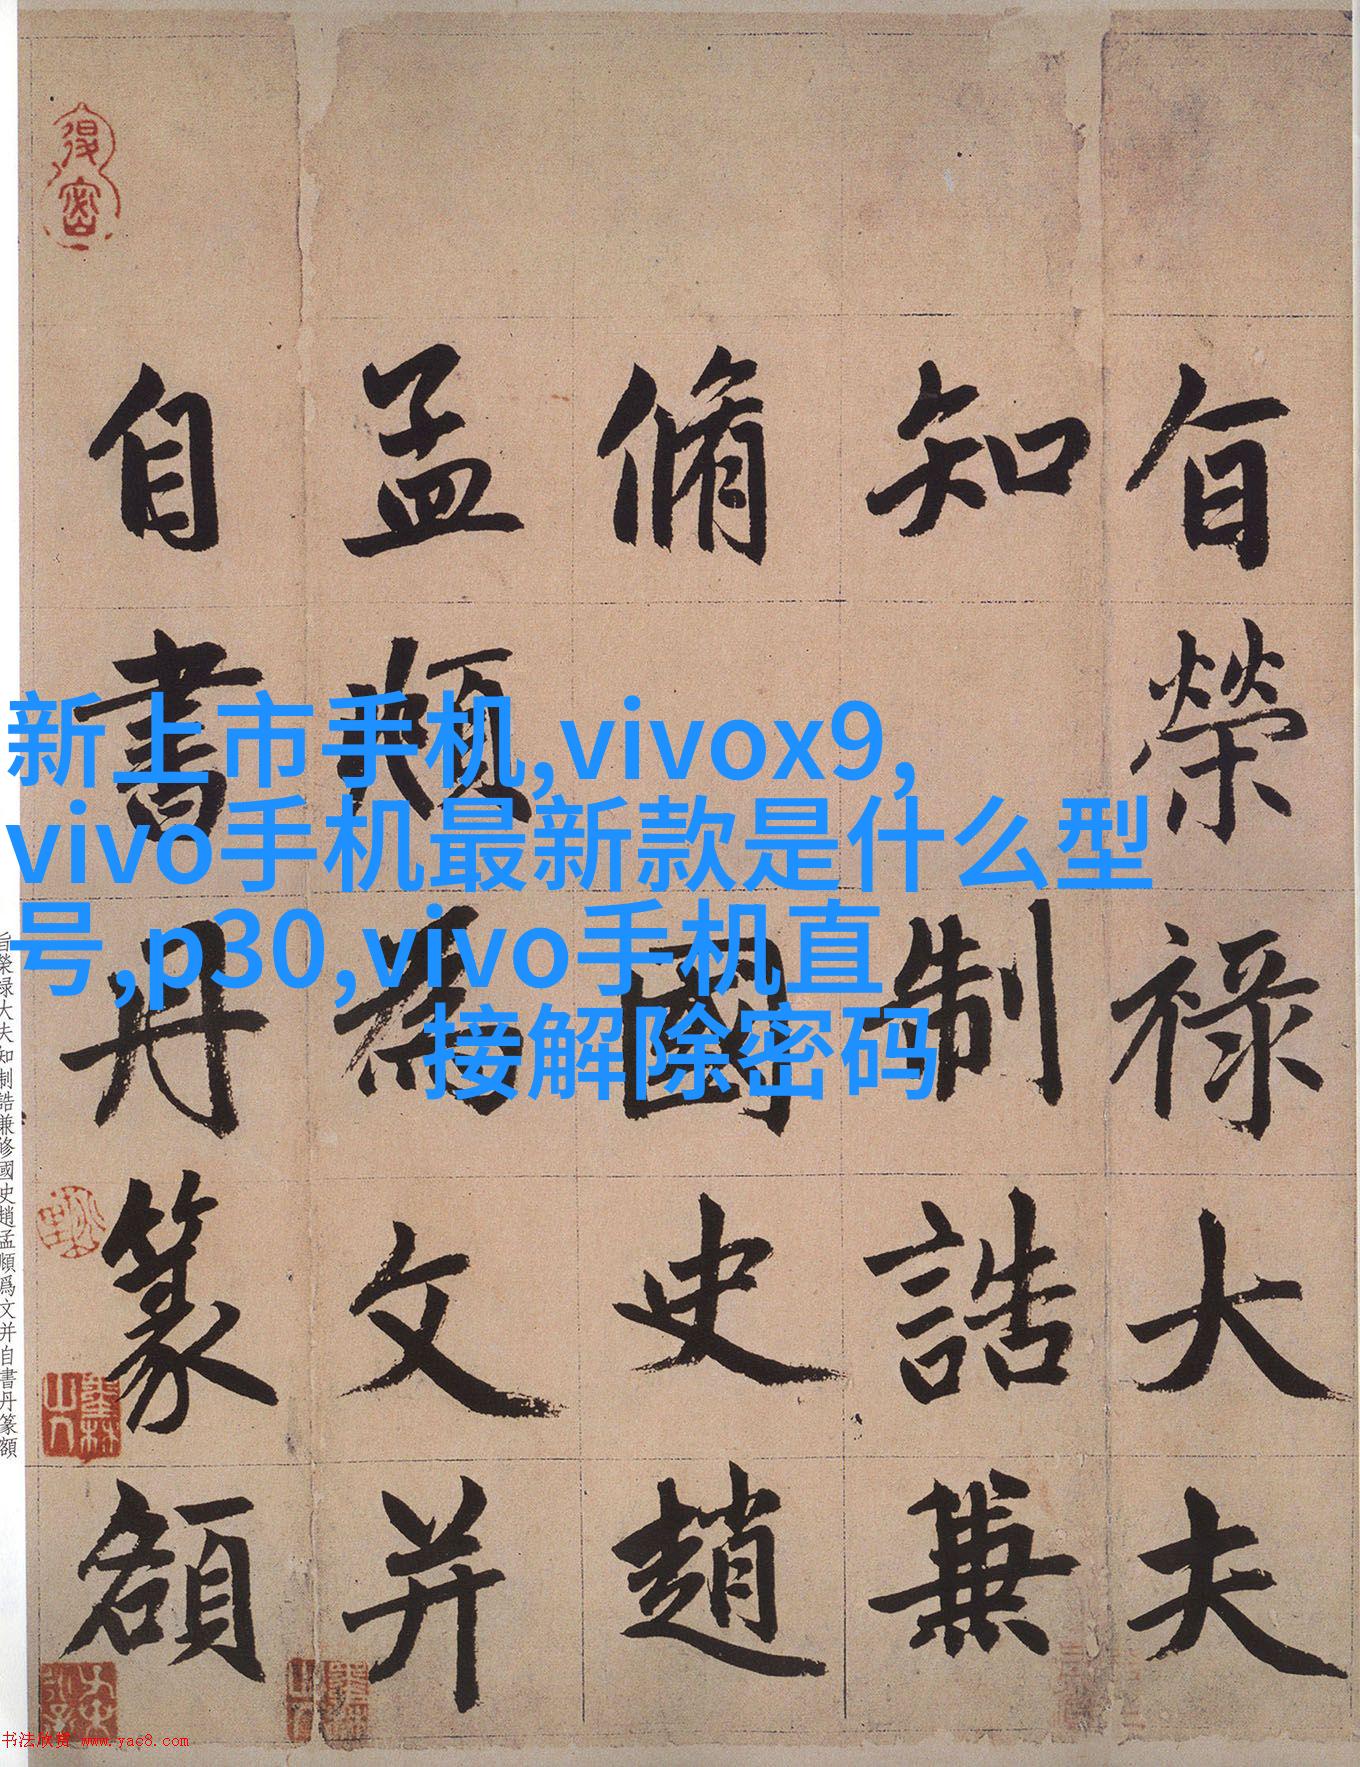 旨榮祿大夫
知制誥兼
脩國史趙
孟頫為文并
自書丹篆額
新上市手机,vivox9,
vivo手机最新款是什么型
号,p30,vivo手机直
接解除密码
旨榮祿大夫知制誥兼修國史趙孟頫爲文并自書丹篆額
墨林山人
书法欣赏 www.yac8.com